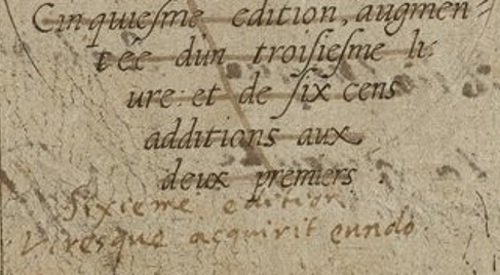 Cinquiesme edition, augmen-
tée dun troisiesme li-
ure: et de six cens
additions aux
deux premiers.
Sixieme edition
Viresque acquirit eundo.